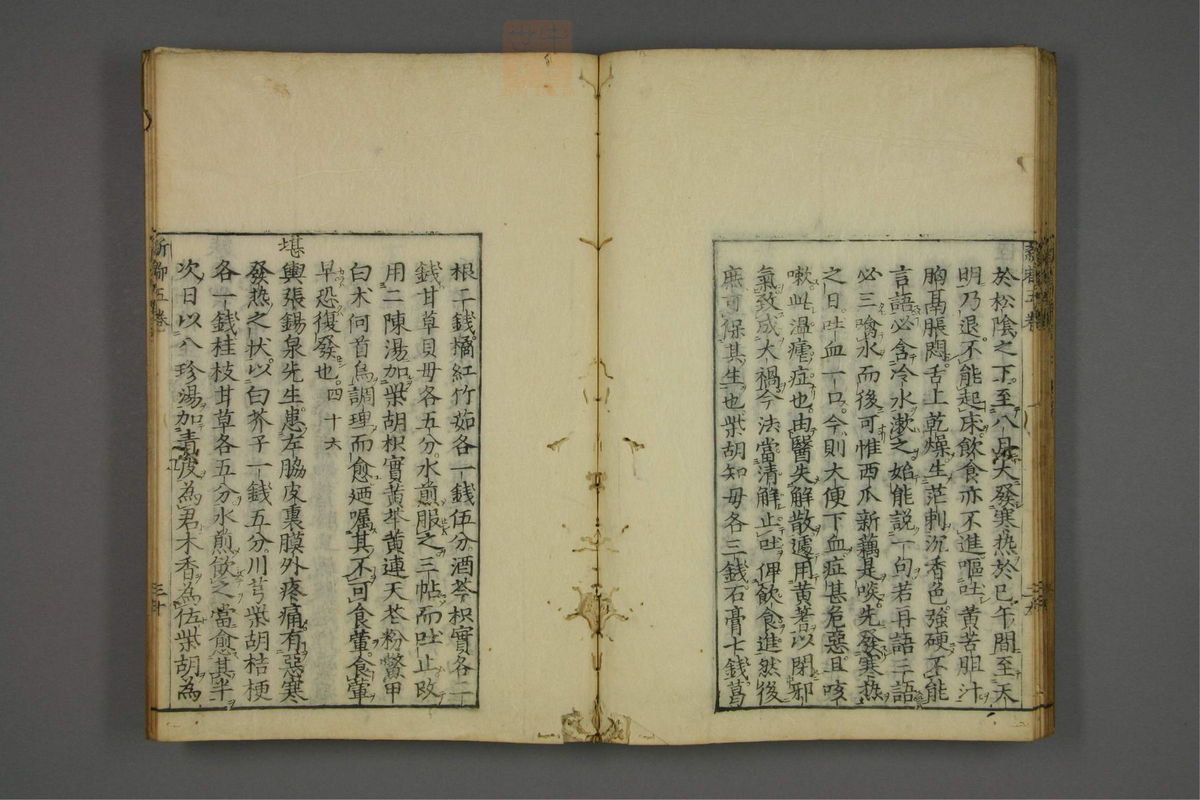 於松陰之下至八月大發寒熱於巳午間至天
明乃退不能起床飲食亦不進嘔吐黃苦胆汁
胸鬲脹悶舌上乾燥生茫刺沉香色強硬不能
言語必含冷水漱之始能説一句若再語三語
必三噙水而後可惟西瓜新藕是啖先發寒熱
之日吐血一口今則大便下血症甚危惡且咳
嗽此温瘧症也由醫失解散遽用黃蓍以閉邪
氣致成大禍今法當清解止吐俾飲食進然後
庶可保其生也柴胡知毋各三錢石膏七錢葛
根二錢橘紅竹茹各一錢伍分酒芩枳實各二
錢甘草貝毋各五分水煎服之三帖而吐止改
用二陳湯加柴胡枳實黃芩黃連天花粉鱉甲
白朮何首烏調理而愈廼囑其不可食葷食葷
早恐復發也四十六
堪輿張錫泉先生患左脇皮裏膜外疼痛有惡寒
發熱之状以白芥子一錢五分川芎柴胡桔梗
各一錢桂枝甘草各五分水煎飲之當愈其半
次日以八珍湯加青皮為君木香為佐柴胡為